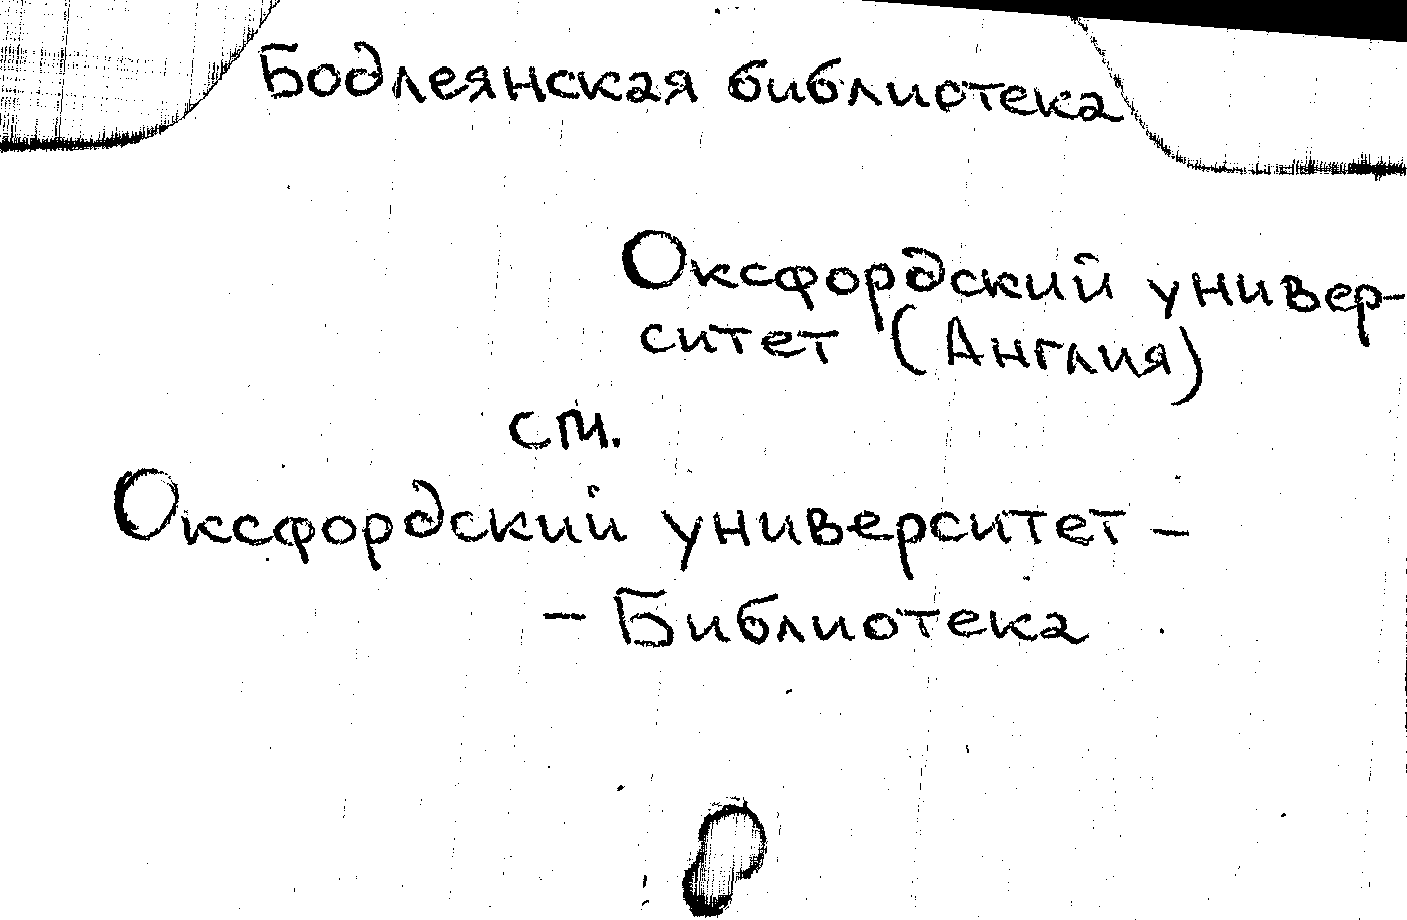 Бодлеянская библиотека
Оксфордский универ-
ситет (Англия)
см.
Оксфордский университет –
– Библиотека